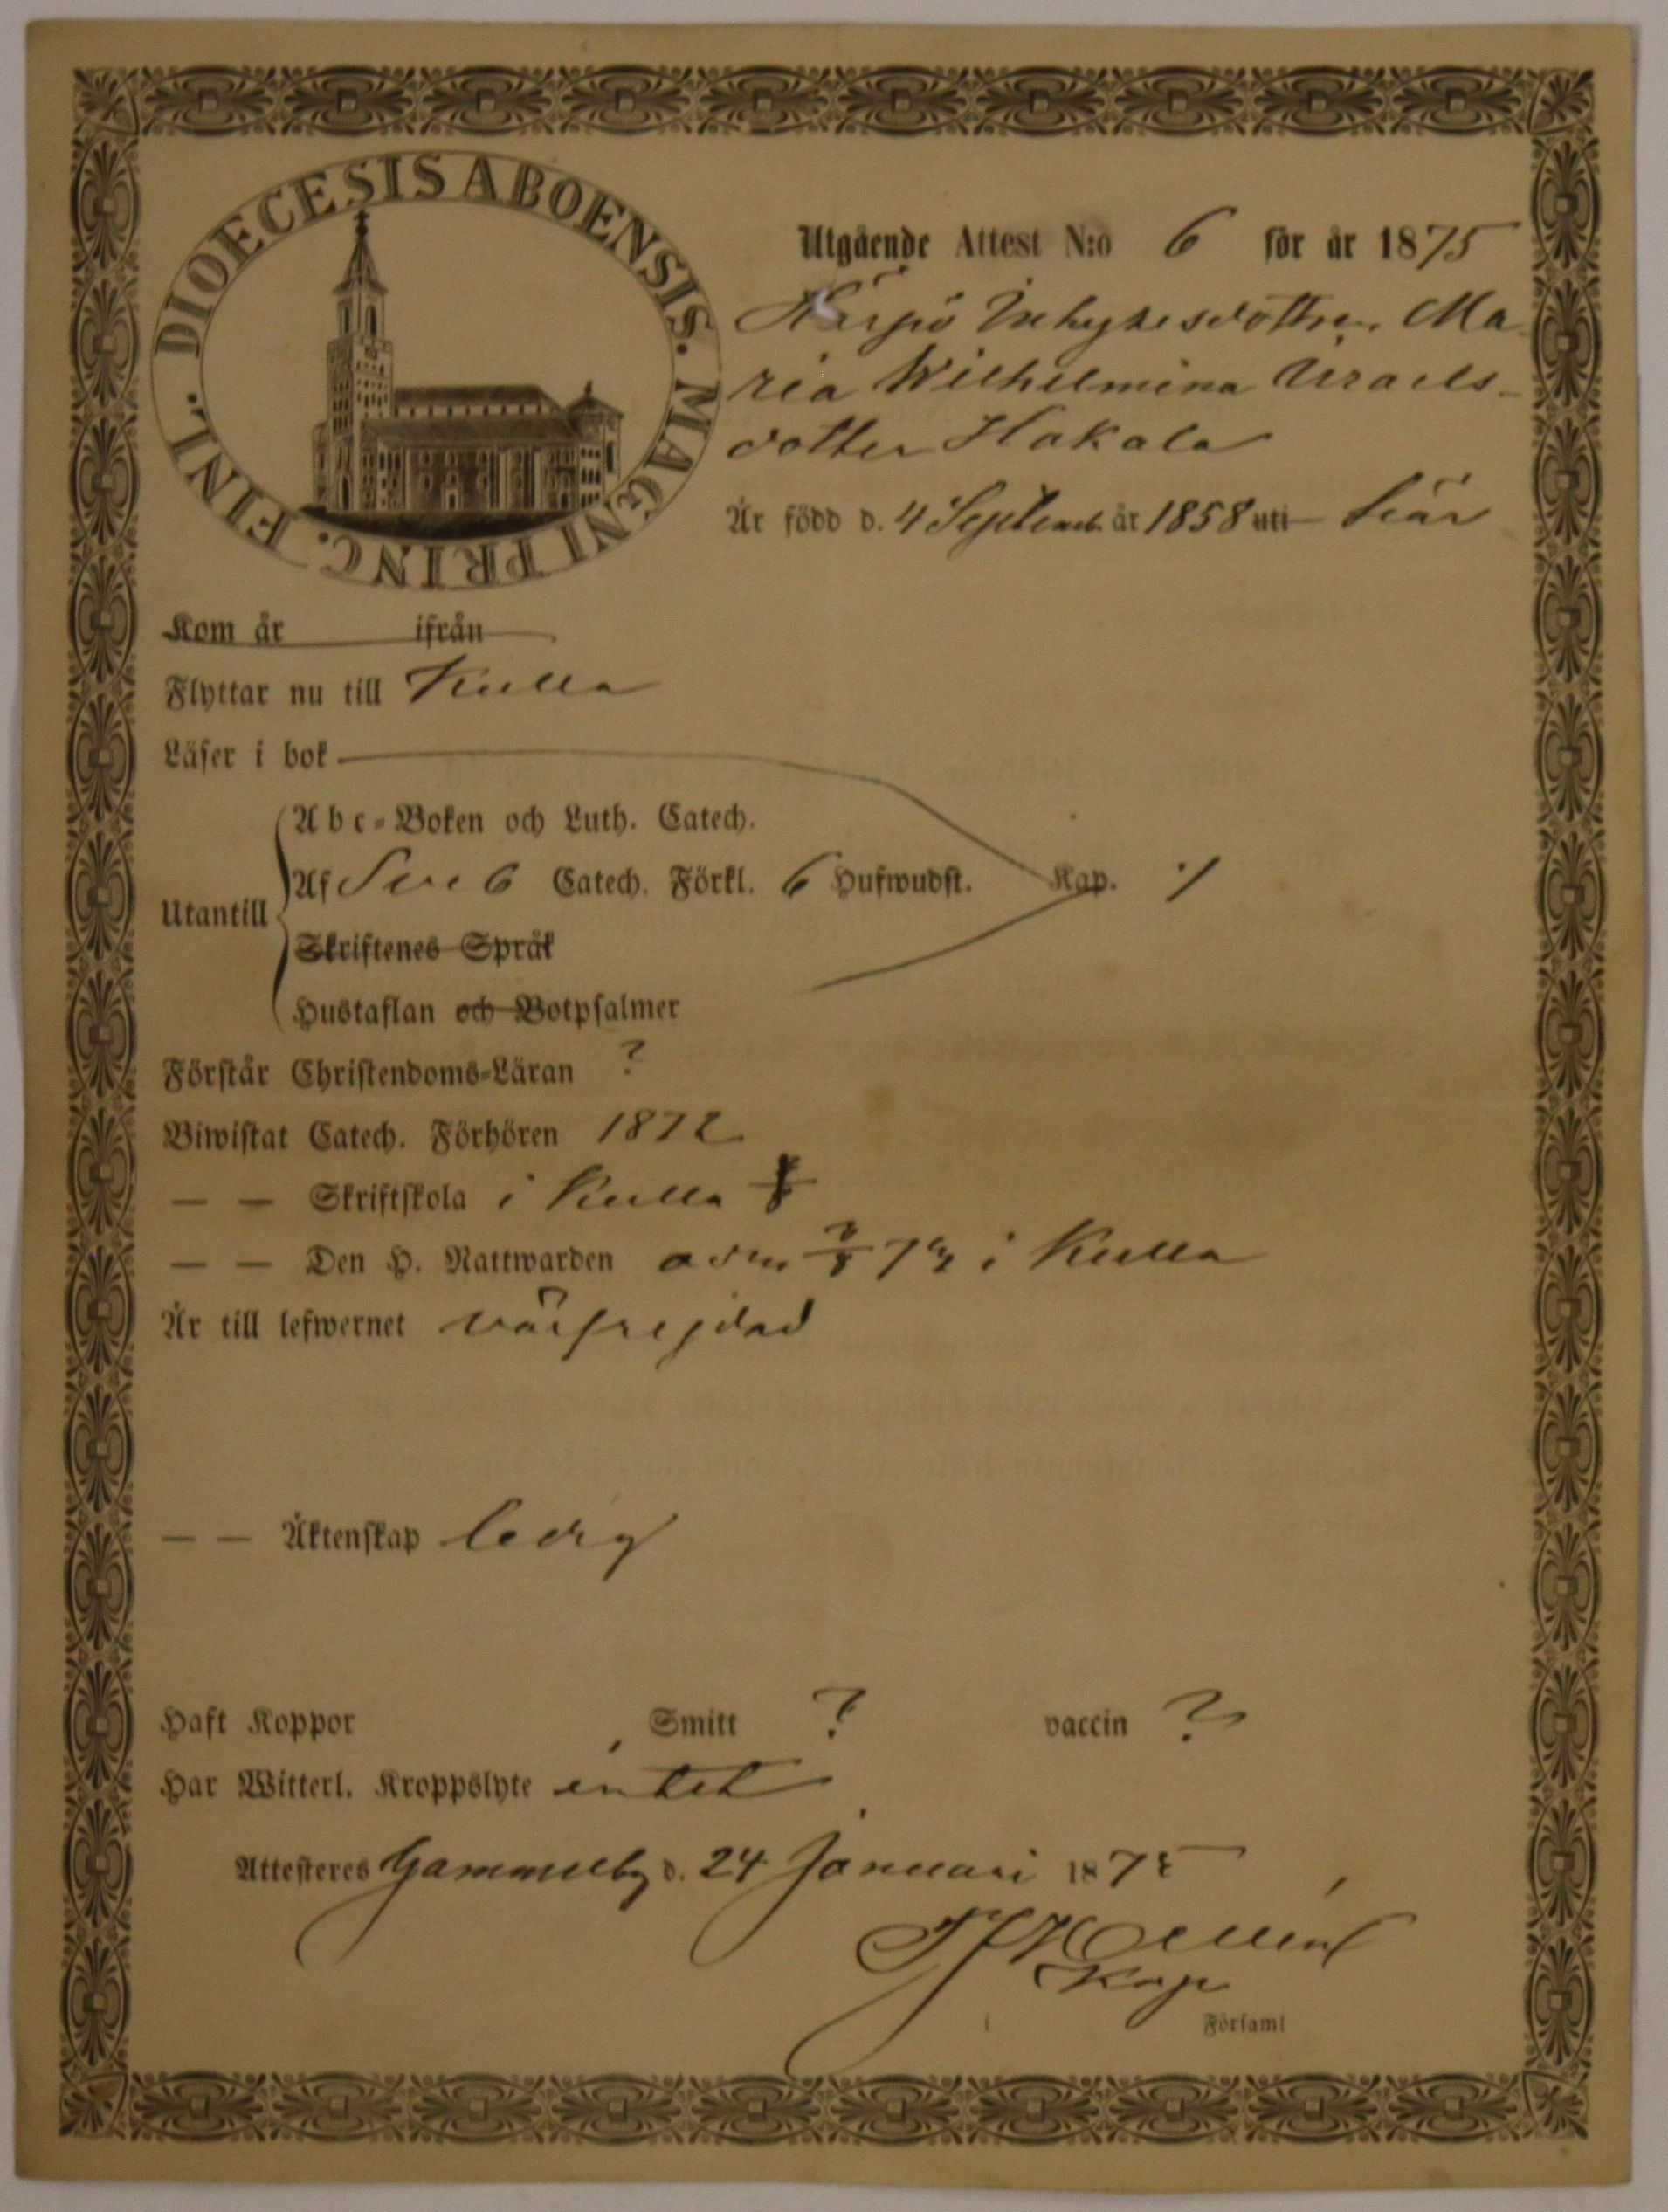 DIOECESIS ABOENSIS. MAGNI PRINC. FINL.
Utgående Attest N:o 6 för år 1875
Inhysesdottren Ma-
ria Wilhelmina Israels-
dotter Hakala
Är född d. 4 Septemb. år 1858 uti här
Kom år ifrån
Flyttar nu till Kulla
Läser i bok
Abc-Boken och Luth. Catech.
Utantill Af Sveb Catech. Förkl. 6 Hufwudst. Kap. ⁒
Skriftenes Språk
Hustaflan och Botpsalmer
Förstår Christendoms-Läran ?
Biwistat Catech. Förhören 1872
— — Skriftskola i Kulla
— — Den H. Nattwarden i Kulla
Är till lefwernet välfrejdad
— — Äktenskap ledig
Haft Koppor Smitt ? vaccin ?
Har Witterl. Kroppslyte intet
Attesteres Gammelby d. 24 Januari 1875
Kap
Förſaml